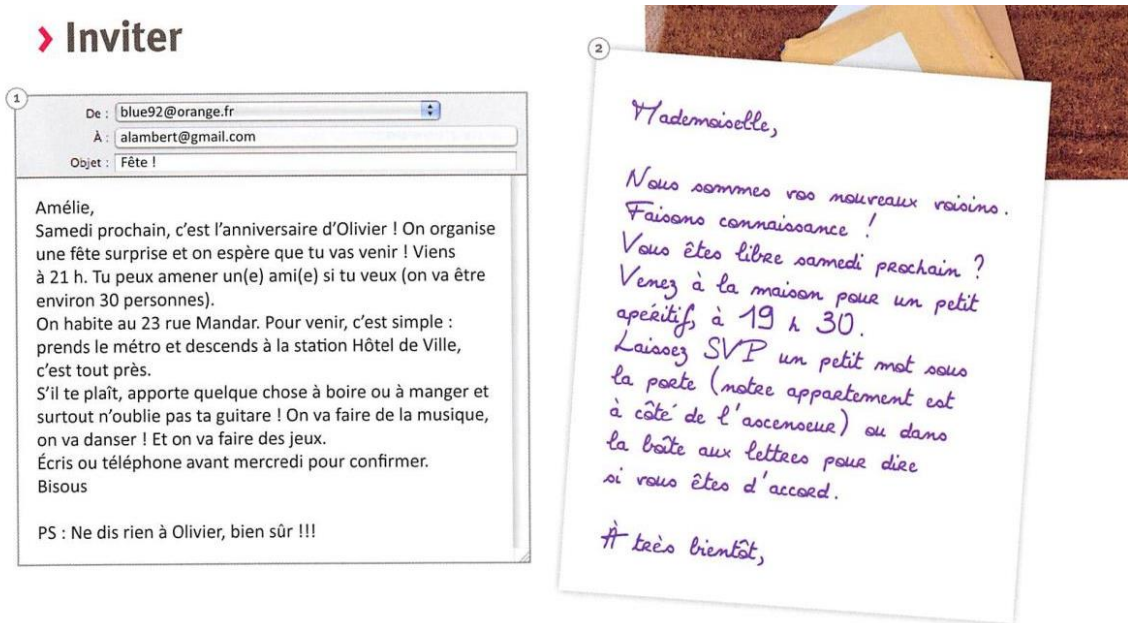 › Inviter
1
De : blue92@orange.fr
À : alambert@gmail.com
Objet : Fête !
Amélie,
Samedi prochain, c'est l'anniversaire d'Olivier ! On organise
une fête surprise et on espère que tu vas venir ! Viens
à 21 h. Tu peux amener un(e) ami(e) si tu veux (on va être
environ 30 personnes).
On habite au 23 rue Mandar. Pour venir, c'est simple :
prends le métro et descends à la station Hôtel de Ville,
c'est tout près.
S'il te plaît, apporte quelque chose à boire ou à manger et
surtout n'oublie pas ta guitare ! On va faire de la musique,
on va danser ! Et on va faire des jeux.
Écris ou téléphone avant mercredi pour confirmer.
Bisous
PS : Ne dis rien à Olivier, bien sûr !!!
2
Mademoiselle,
Nous sommes vos nouveaux voisins.
Faisons connaissance !
Vous êtes libre samedi prochain ?
Venez à la maison pour un petit
apéritif, à 19 h 30.
Laissez SVP un petit mot sous
la porte (notre appartement est
à côté de l'ascenseur) ou dans
la boîte aux lettres pour dire
si vous êtes d'accord.
À très bientôt,